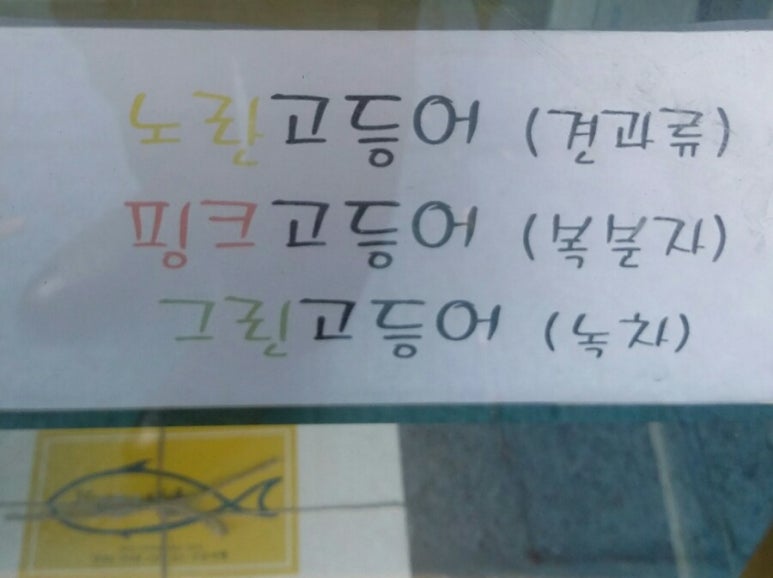 노란고등어 (견과류)
핑크고등어 (복분자)
그린고등어 (녹차)